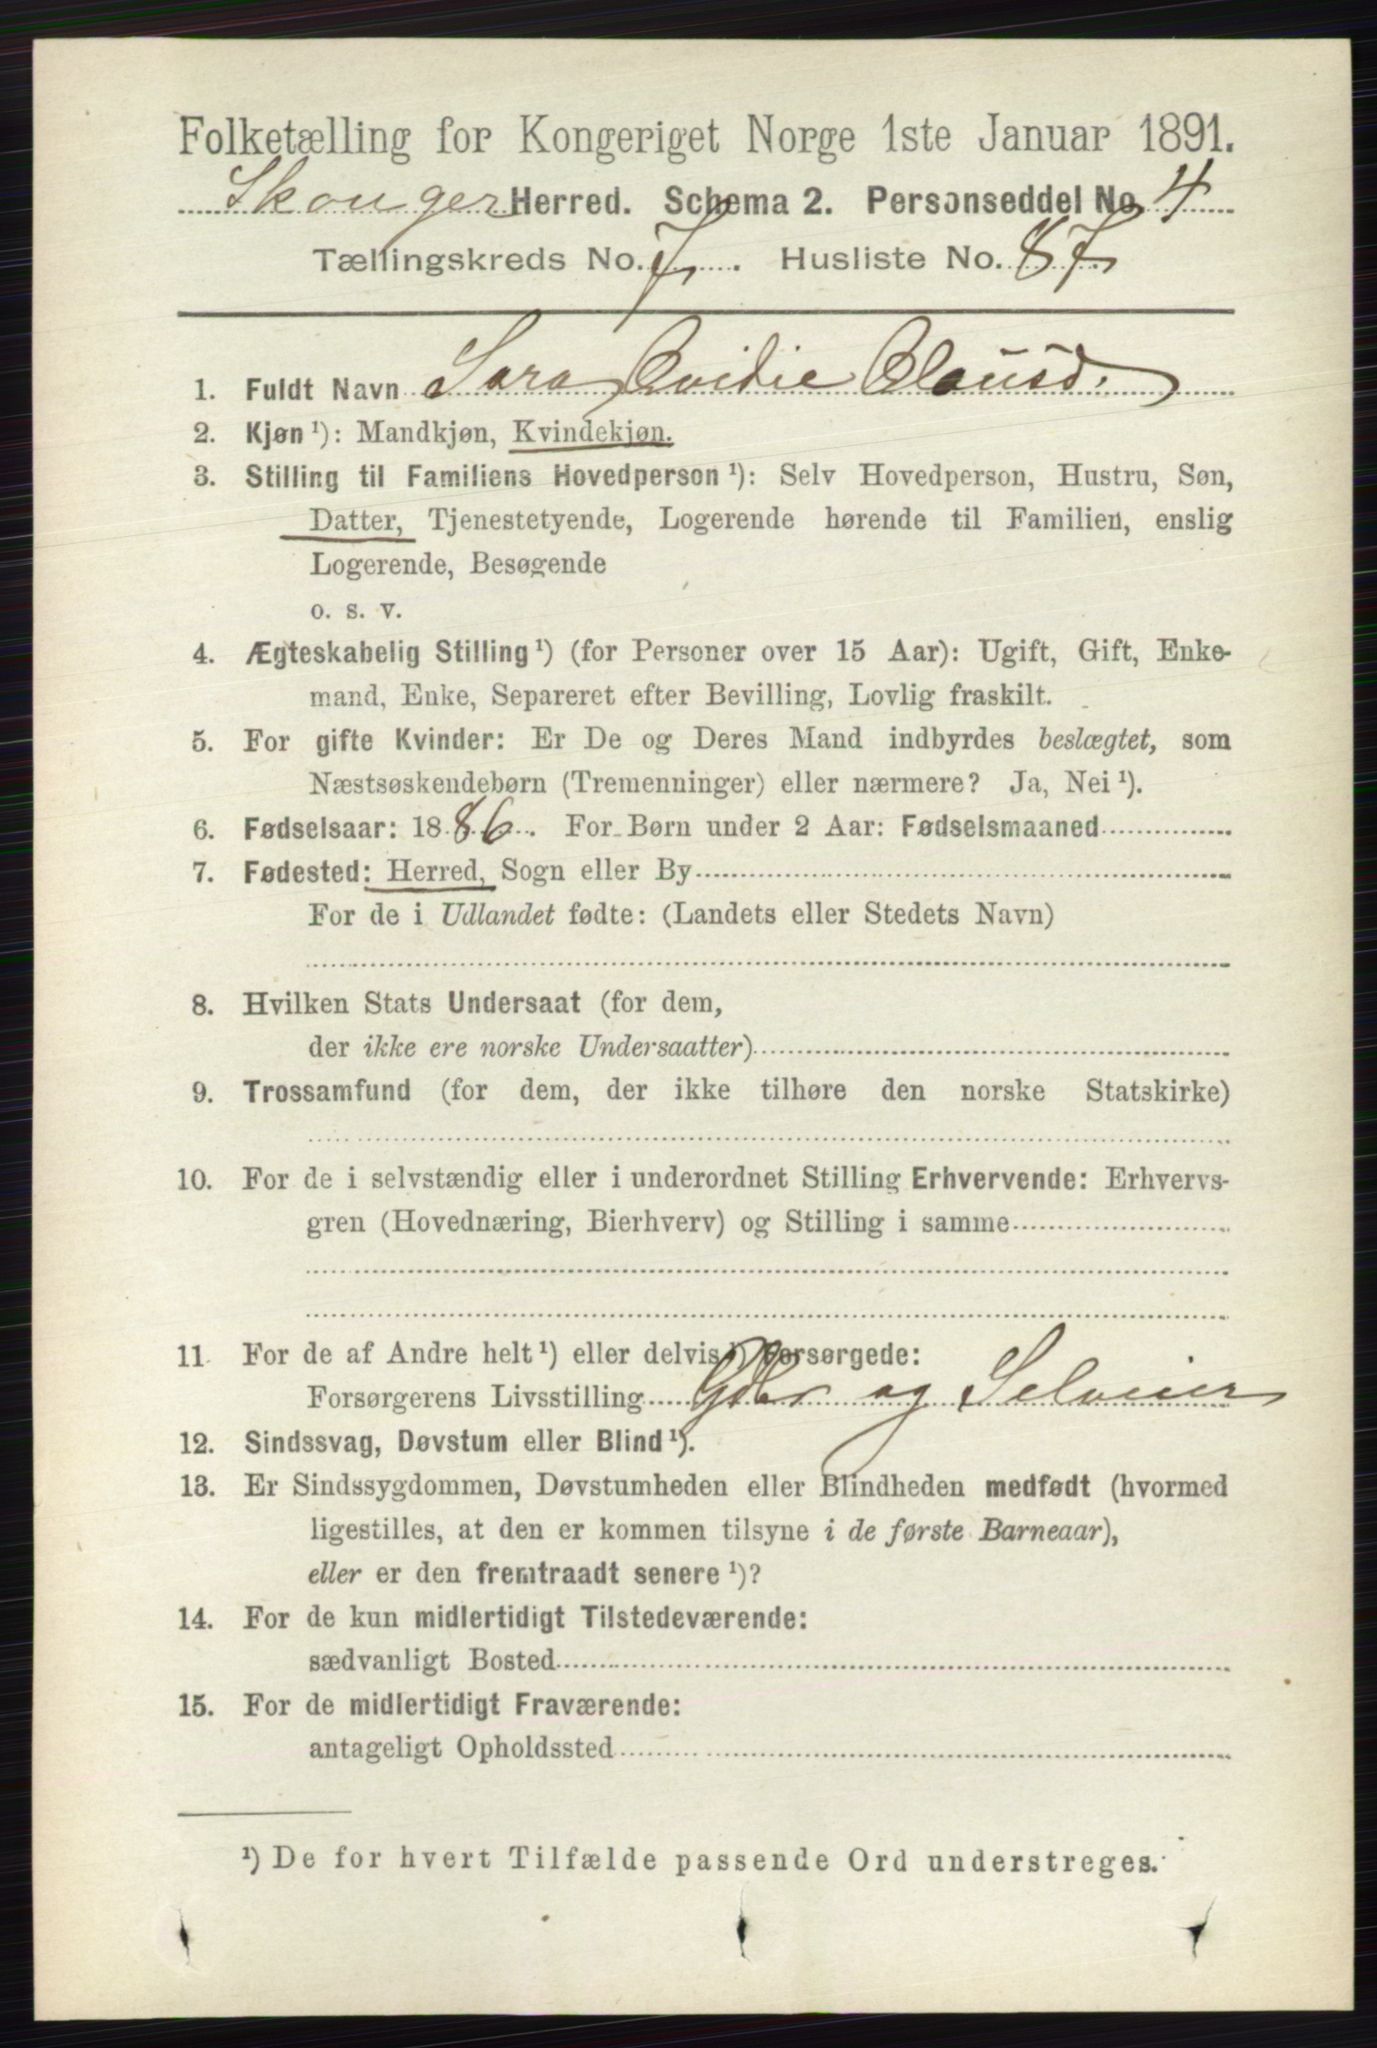 Folketælling for Kongeriget Norge 1ste Januar 1891.
Skouger Herred. Schema 2. Personseddel No. 4
Tællingskreds No. 7. Husliste No. 87
1. Fuldt Navn Sara Ovidie Clausd.
2. Kjøn ¹): Mandkjøn, Kvindekjøn.
3. Stilling til Familiens Hovedperson ¹): Selv Hovedperson, Hustru, Søn,
Datter, Tjenestetyende, Logerende hørende til Familien, enslig
Logerende, Besøgende
o. s. v.
4. Ægteskabelig Stilling ¹) (for Personer over 15 Aar): Ugift, Gift, Enke-
mand, Enke, Separeret efter Bevilling, Lovlig fraskilt.
5. For gifte Kvinder: Er De og Deres Mand indbyrdes beslægtet, som
Næstsøskendebørn (Tremenninger) eller nærmere? Ja, Nei ¹).
6. Fødselsaar: 1886. For Børn under 2 Aar: Fødselsmaaned
7. Fødested: Herred, Sogn eller By
For de i Udlandet fødte: (Landets eller Stedets Navn)
8. Hvilken Stats Undersaat (for dem,
der ikke ere norske Undersaatter)
9. Trossamfund (for dem, der ikke tilhøre den norske Statskirke)
10. For de i selvstændig eller i underordnet Stilling Erhvervende: Erhvervs-
gren (Hovednæring, Bierhverv) og Stilling i samme
11 For de af Andre helt ¹) eller delvis ¹) Forsørgede:
Forsørgerens Livsstilling Gbr og Selveier
12. Sindssvag, Døvstum eller Blind ¹).
13. Er Sindssygdommen, Døvstumheden eller Blindheden medfødt (hvormed
ligestilles, at den er kommen tilsyne i de første Barneaar),
eller er den fremtraadt senere ¹)?
14. For de kun midlertidigt Tilstedeværende:
sædvanligt Bosted
15. For de midlertidigt Fraværende:
antageligt Opholdssted
¹) De for hvert Tilfælde passende Ord understreges.